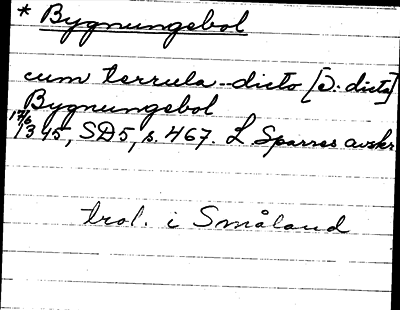 * Bygnungebol
cum terrula dicto [ɔ: dicta]
Bygnungebol
17/6 1345, SD5, s. 467. L Sparres avskr
trol. i Småland